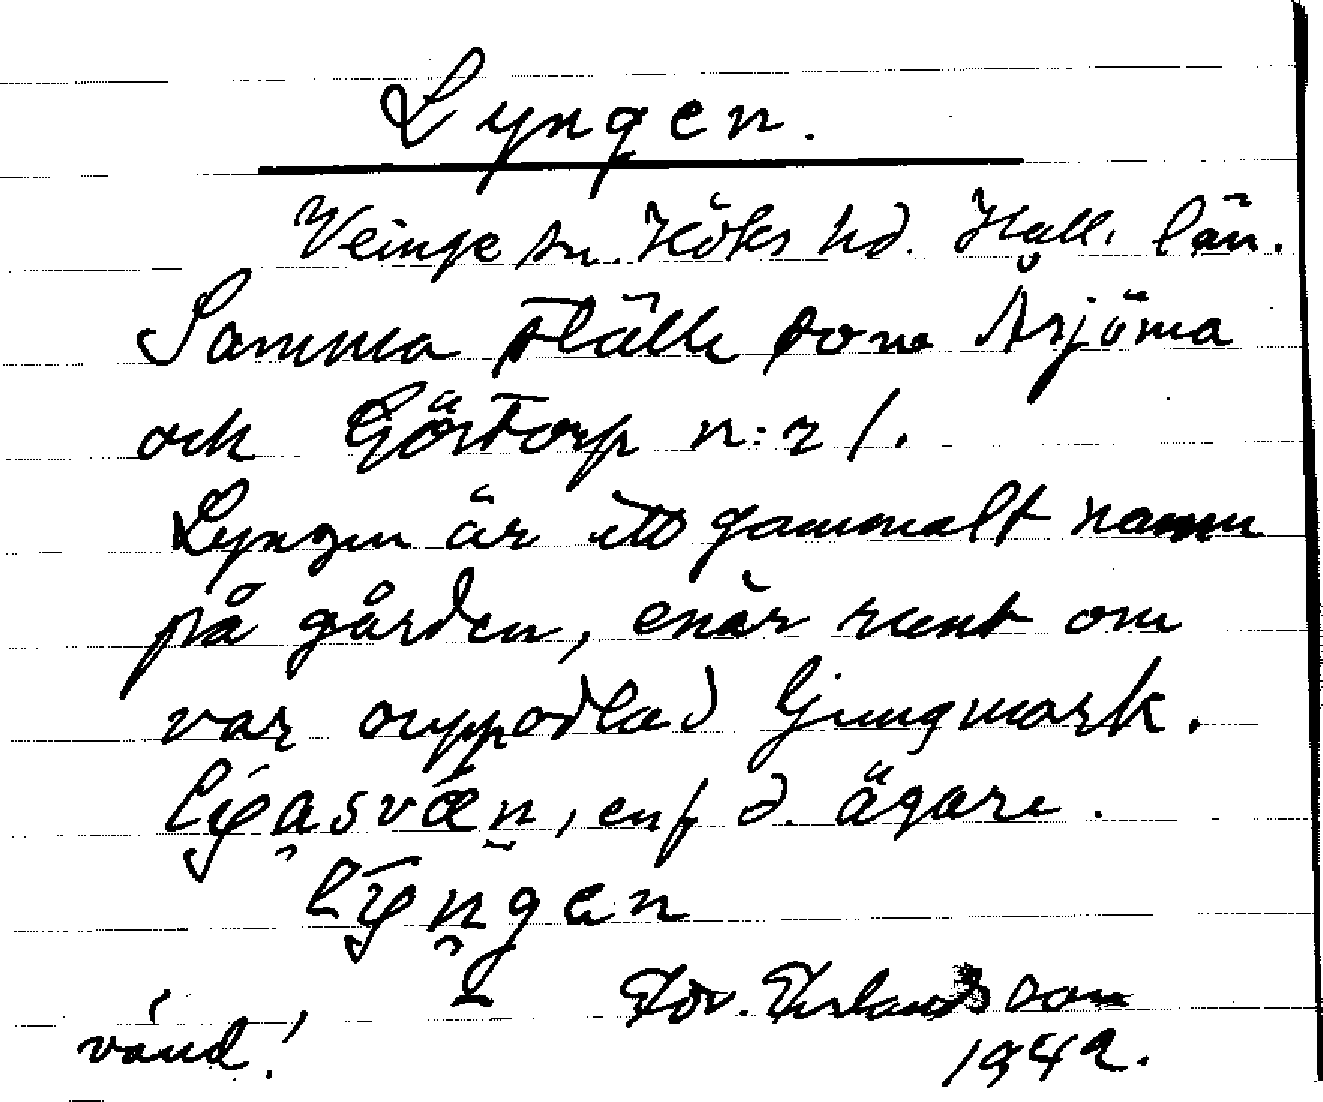 Lyngen.
Veinge sn. Höks hd. Hall. län.
Samma ställe som Årjöma
och Göstorp n:r 1.
Lyngen är ett gammalt namn
på gården, enär runt om
var ouppodlad ljungmark.
enf d. ägare.
lyngen
Edv. Erlandsson
1942.
vänd!